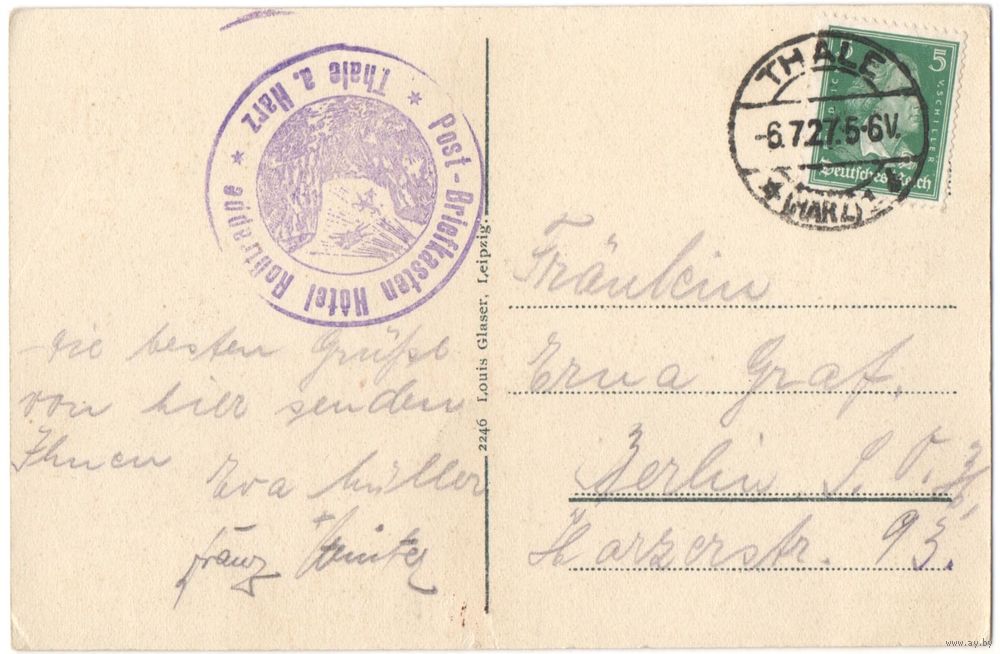 Post-Briefkasten Hôtel Roßtrappe
Thale a. Harz
die besten Grüße
von hier senden
Ihnen
Eva Müller
Franz
2246 Louis Glaser, Leipzig.
THALE
-6.7.27.5-6V.
(HARZ) 1
5
V. SCHILLER
Deutsches Reich
Fräulein
Erna Graf,
Berlin S.O. 36,
Harzerstr. 93.
www.ay.by